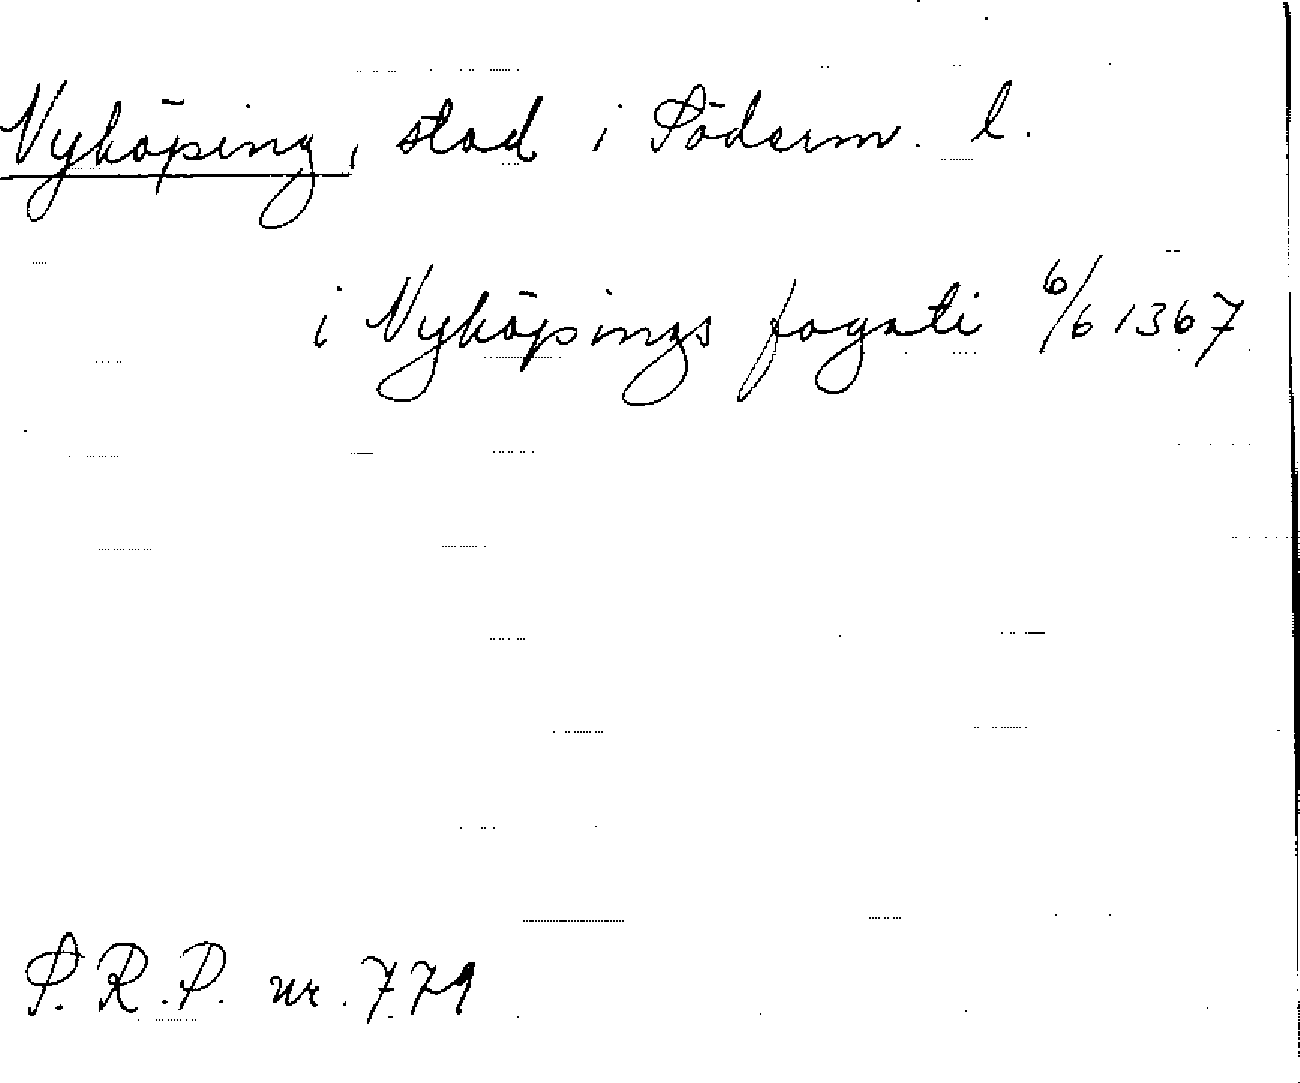 Nyköping, stad i Söderm. l.
i Nyköpings fogati 6/6 1367
S.R.P. nr. 779